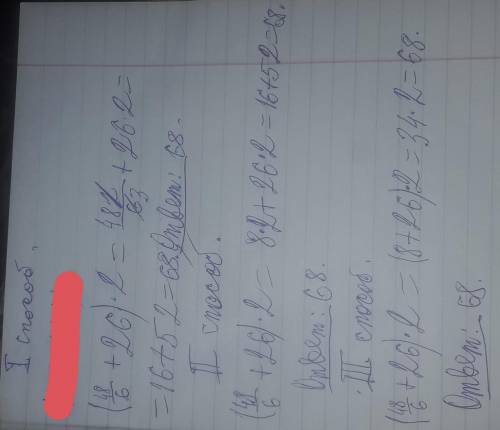 I способ.
(48/6 + 26) · 2 = 48·2/6 3 + 26·2 =
= 16+52=68. Ответ: 68.
II способ.
(48/6 + 26) · 2 = 8·2 + 26·2 = 16+52=68.
Ответ: 68.
III способ.
(48/6 + 26) · 2 = (8+26)·2 = 34·2=68.
Ответ: 68.